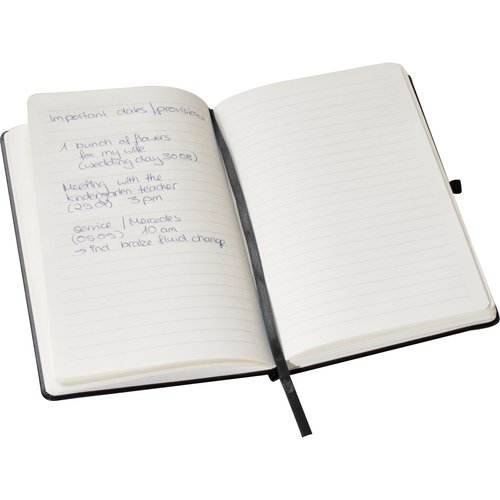 Important dates/provisions
1 bunch of flowers
for my wife
(wedding day 30.08)
Meeting with the
kindergarten teacher
(29.07) 3 pm
service / Mercedes
(05.09) 10 am
→ incl. brake fluid change